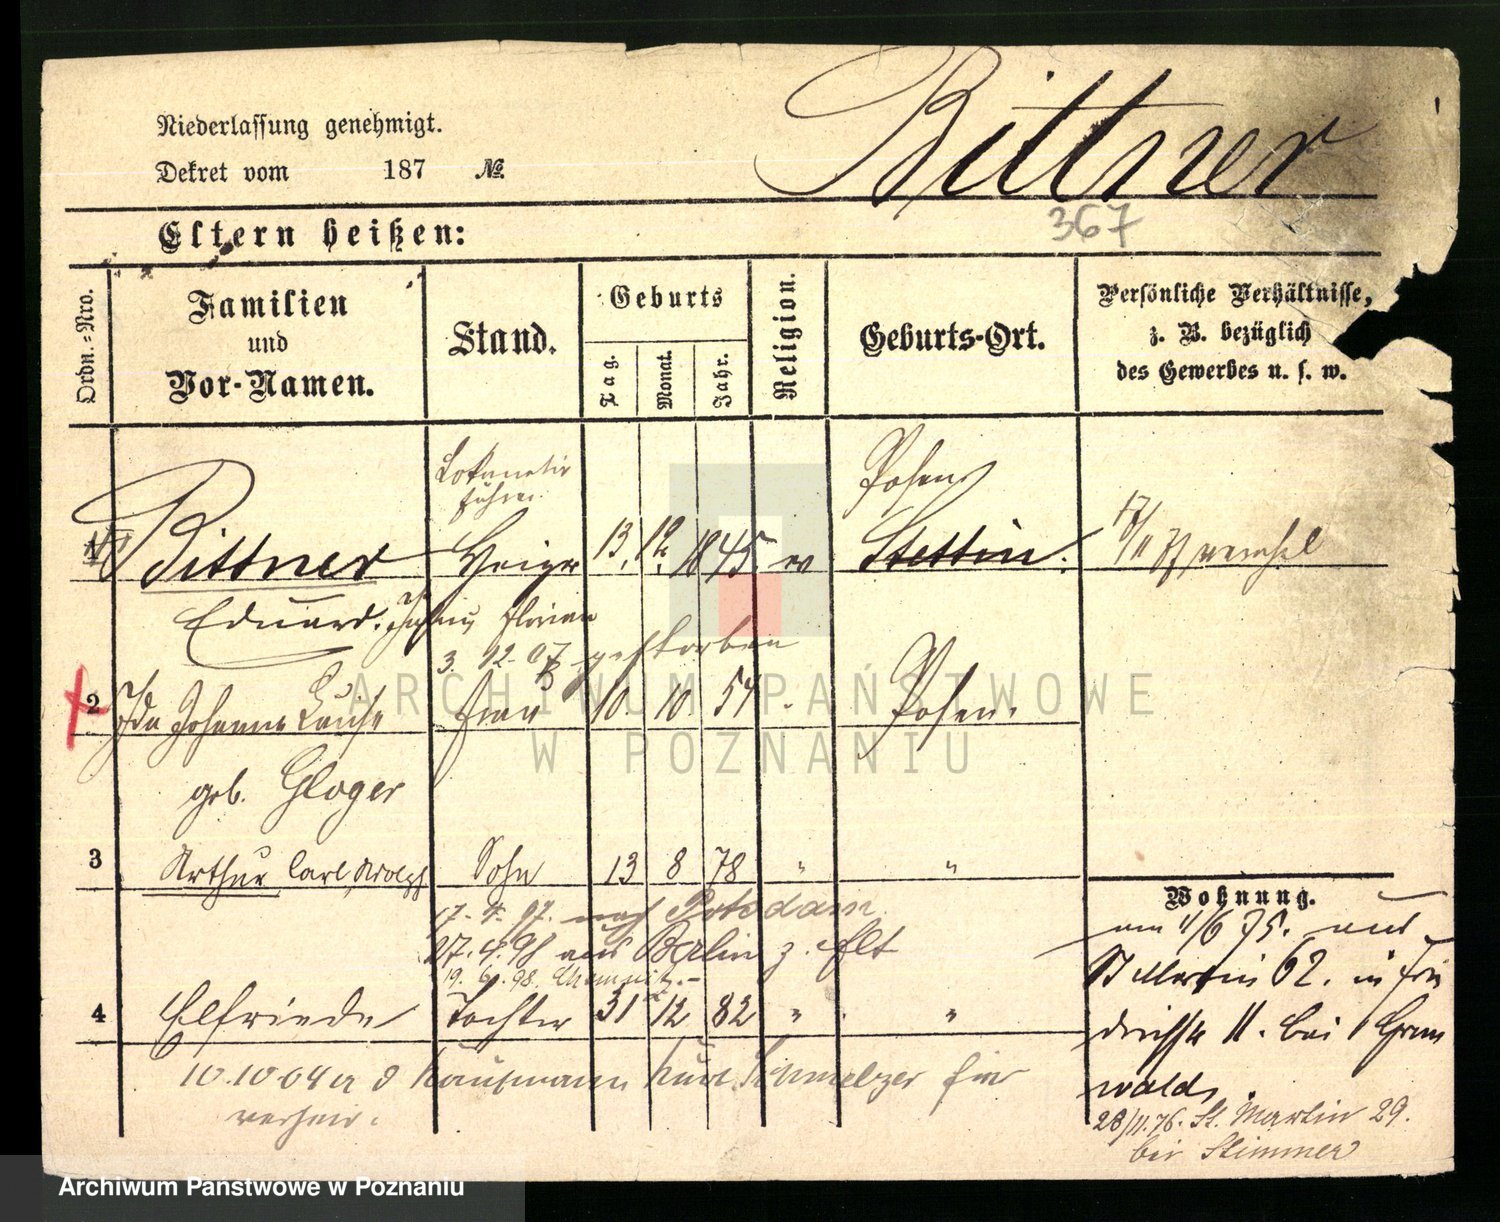 Niederlassung genehmigt.
Bittner
Dekret vom 187 №.
367
Eltern heißen:
Ordn.-Nro.
Familien
und
Vor-Namen.
Stand.
Geburts
Tag.
Monat.
Jahr.
Religion.
Geburts-Ort.
Persönliche Verhältnisse,
z. B. bezüglich
des Gewerbes u. s. w.
Lokomotiv
führer.
Posen
1 Bittner Heizer 13. 12. 1845. ev Stettin.
17/11 77
Eduard. Julius Florian
3. 12. 07 gestorben
2 Ida Johanne Louise Frau 10. 10. 54 Posen.
geb. Gloger
3 Arthur Carl Adolph Sohn 13 8 78 " "
17. 4. 97. nach Potsdam
27. 4. 98 aus Berlin z. Elt
19. 6. 98. Chemnitz.
4 Elfriede Tochter 31 12 82 " "
10.10.04 a d Kaufmann Kurt Schmelzer hier
verheir.
Wohnung.
am 4/6 75. aus
St Martin 62. in Frie
drichstr 11. bei Grun
wald.
28/11.76. St. Martin 29.
bei Stimmer
ARCHIWUM PAŃSTWOWE
W POZNANIU
Archiwum Państwowe w Poznaniu